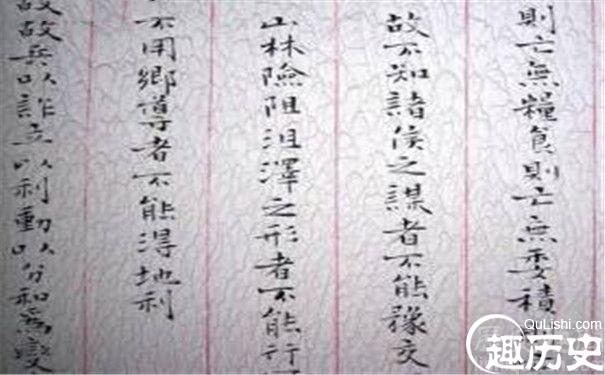 則亡無糧食則亡無委積
故不知諸侯之謀者不能豫交
山林險阻沮澤之形者不能行
不用鄉導者不能得地利
故兵以詐立以利動以分和為變
QuLishi.com
趣历史